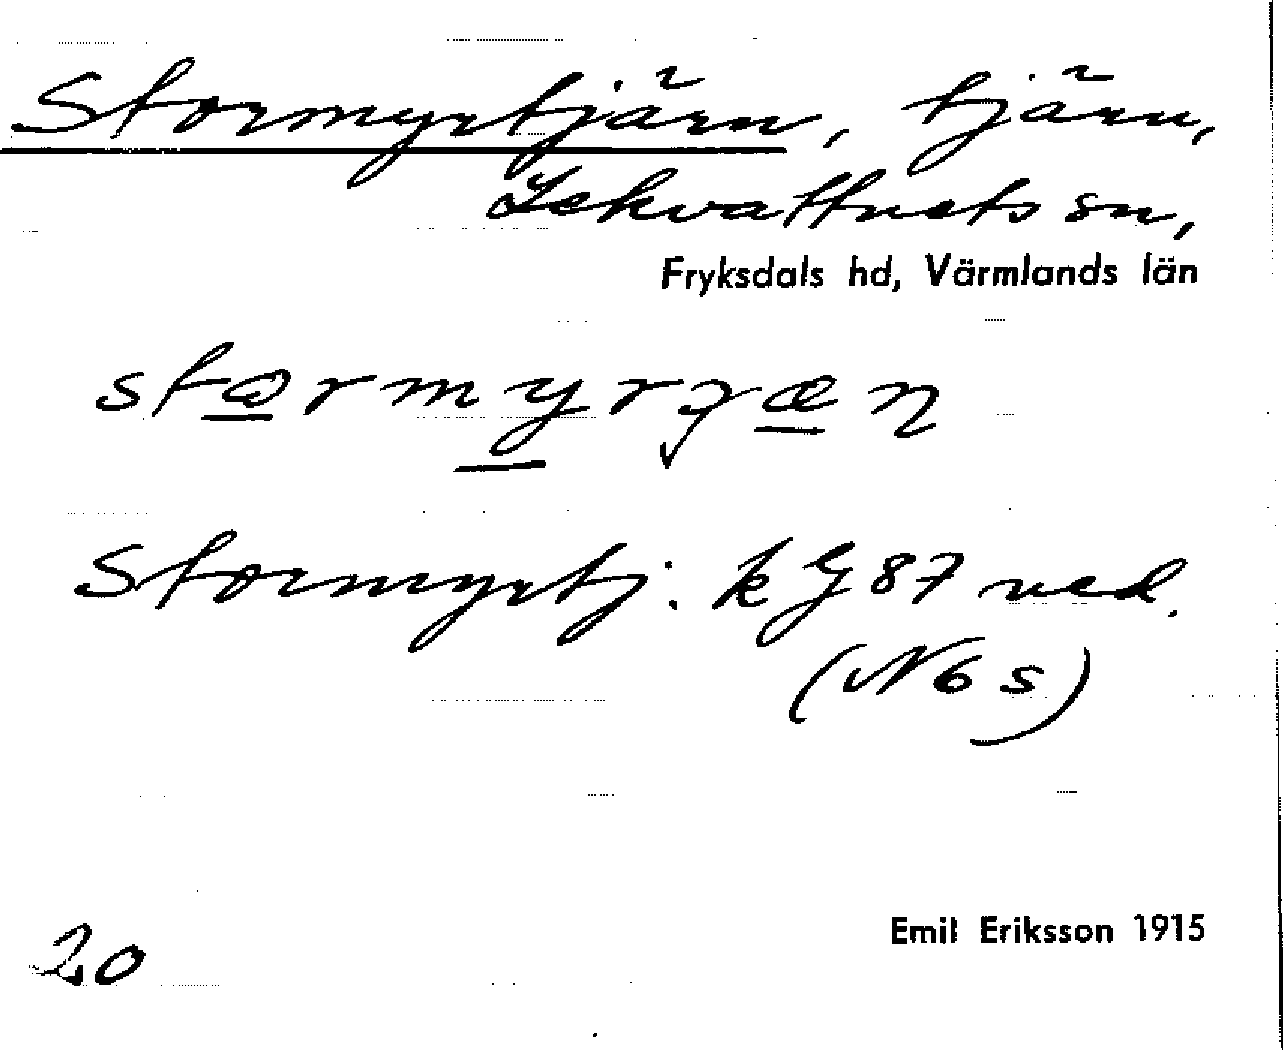 Stormyrtjärn, tjärn,
Lekvattnets sn,
Fryksdals hd, Värmlands län
Stormyrtj: k G 87 ned.
(N 6 s)
Emil Eriksson 1915
20